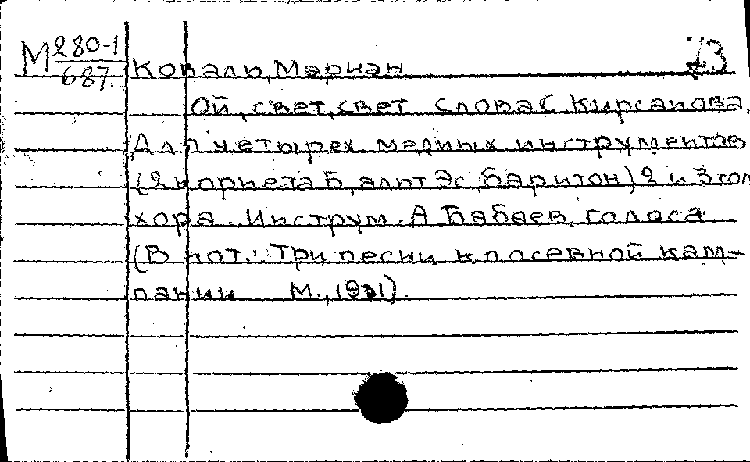 М 280-1
687.
Коваль, Мариан
Ой, свет, свет Слова С. Кирсанова.
Для четырех медных инструментов
(2 корнета Б, альт Эс, баритон) 2 и 3 гол
хора. Инструм. А Бабаев. голоса
(В нот.: Три песни к посевной кам-
пании М., 1931).